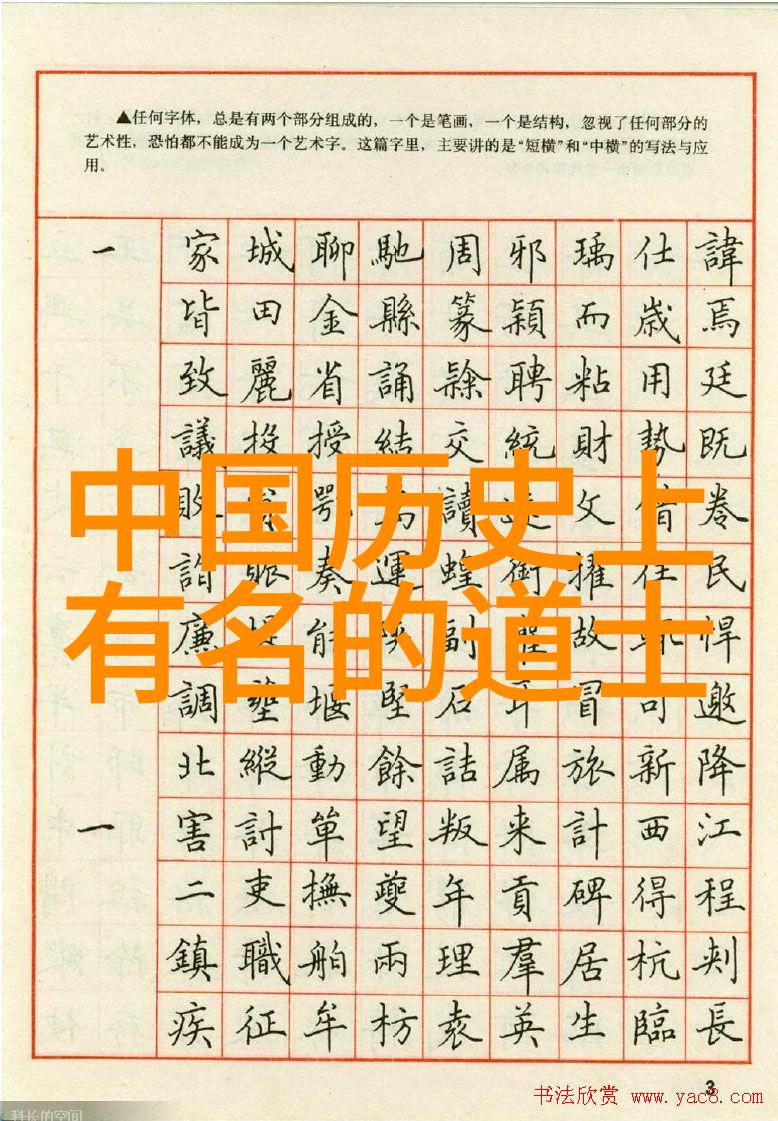 ▲任何字体，总是有两个部分组成的，一个是笔画，一个是结构，忽视了任何部分的
艺术性，恐怕都不能成为一个艺术字。这篇字里，主要讲的是“短横”和“中横”的写法与应
用。
一 家 城 聊 馳 周 邪 瑀 仕 諱
皆 田 金 縣 篆 穎 而 歲 焉
致 麗 省 誦 隸 聘 粘 用 廷
議 投 授 結 交 統 財 勢 既
敗 鄂 讀 文 借 卷
中国历史上
詣 賑 奏 運 蝗 銜 擢 任 民
有名的道士
廉 能 副 故 悍
調 壅 堰 堅 石 耳 冒 司 邀
北 縱 動 餘 詰 属 旅 新 降
一 害 討 單 望 叛 来 計 西 江
二 吏 撫 夔 年 貢 碑 得 程
鎮 職 舶 兩 理 羣 居 杭 刺
疾 征 牟 枋 袁 英 生 臨 長
3
书法欣赏 www.yac8.com
科长的空间